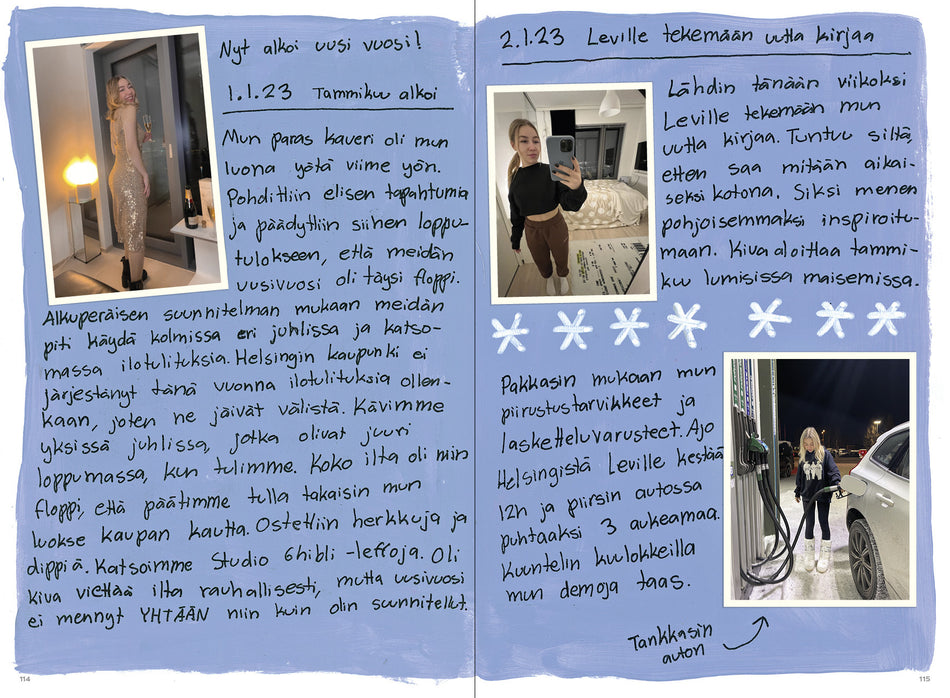 Nyt alkoi uusi vuosi!
1.1.23 Tammikuu alkoi
Mun paras kaveri oli mun
luona yötä viime yön.
Pohdittiin eilisen tapahtumia
ja päädyttiin siihen loppu-
tulokseen, että meidän
uusivuosi oli täysi floppi.
Alkuperäisen suunnitelman mukaan meidän
piti käydä kolmissa eri juhlissa ja katso-
massa ilotulituksia. Helsingin kaupunki ei
järjestänyt tänä vuonna ilotulituksia ollen-
kaan, joten ne jäivät välistä. Kävimme
yksissä juhlissa, jotka olivat juuri
loppumassa, kun tulimme. Koko ilta oli niin
floppi, että päätimme tulla takaisin mun
luokse kaupan kautta. Ostettiin herkkuja ja
dippiä. Katsoimme Studio Ghibli -leffoja. Oli
kiva viettää ilta rauhallisesti, mutta uusivuosi
ei mennyt YHTÄÄN niin kuin olin suunnitellut.
114
2.1.23 Leville tekemään uutta kirjaa
Lähdin tänään viikoksi
Leville tekemään mun
uutta kirjaa. Tuntuu siltä,
etten saa mitään aikai-
seksi kotona. Siksi menen
pohjoisemmaksi inspiroitu-
maan. Kiva aloittaa tammi-
kuu lumisissa maisemissa.
Pakkasin mukaan mun
piirustustarvikkeet ja
lasketteluvarusteet. Ajo
Helsingistä Leville kestää
12h ja piirsin autossa
puhtaaksi 3 aukeamaa.
Kuuntelin kuulokkeilla
mun demoja taas.
Tankkasin
auton
115